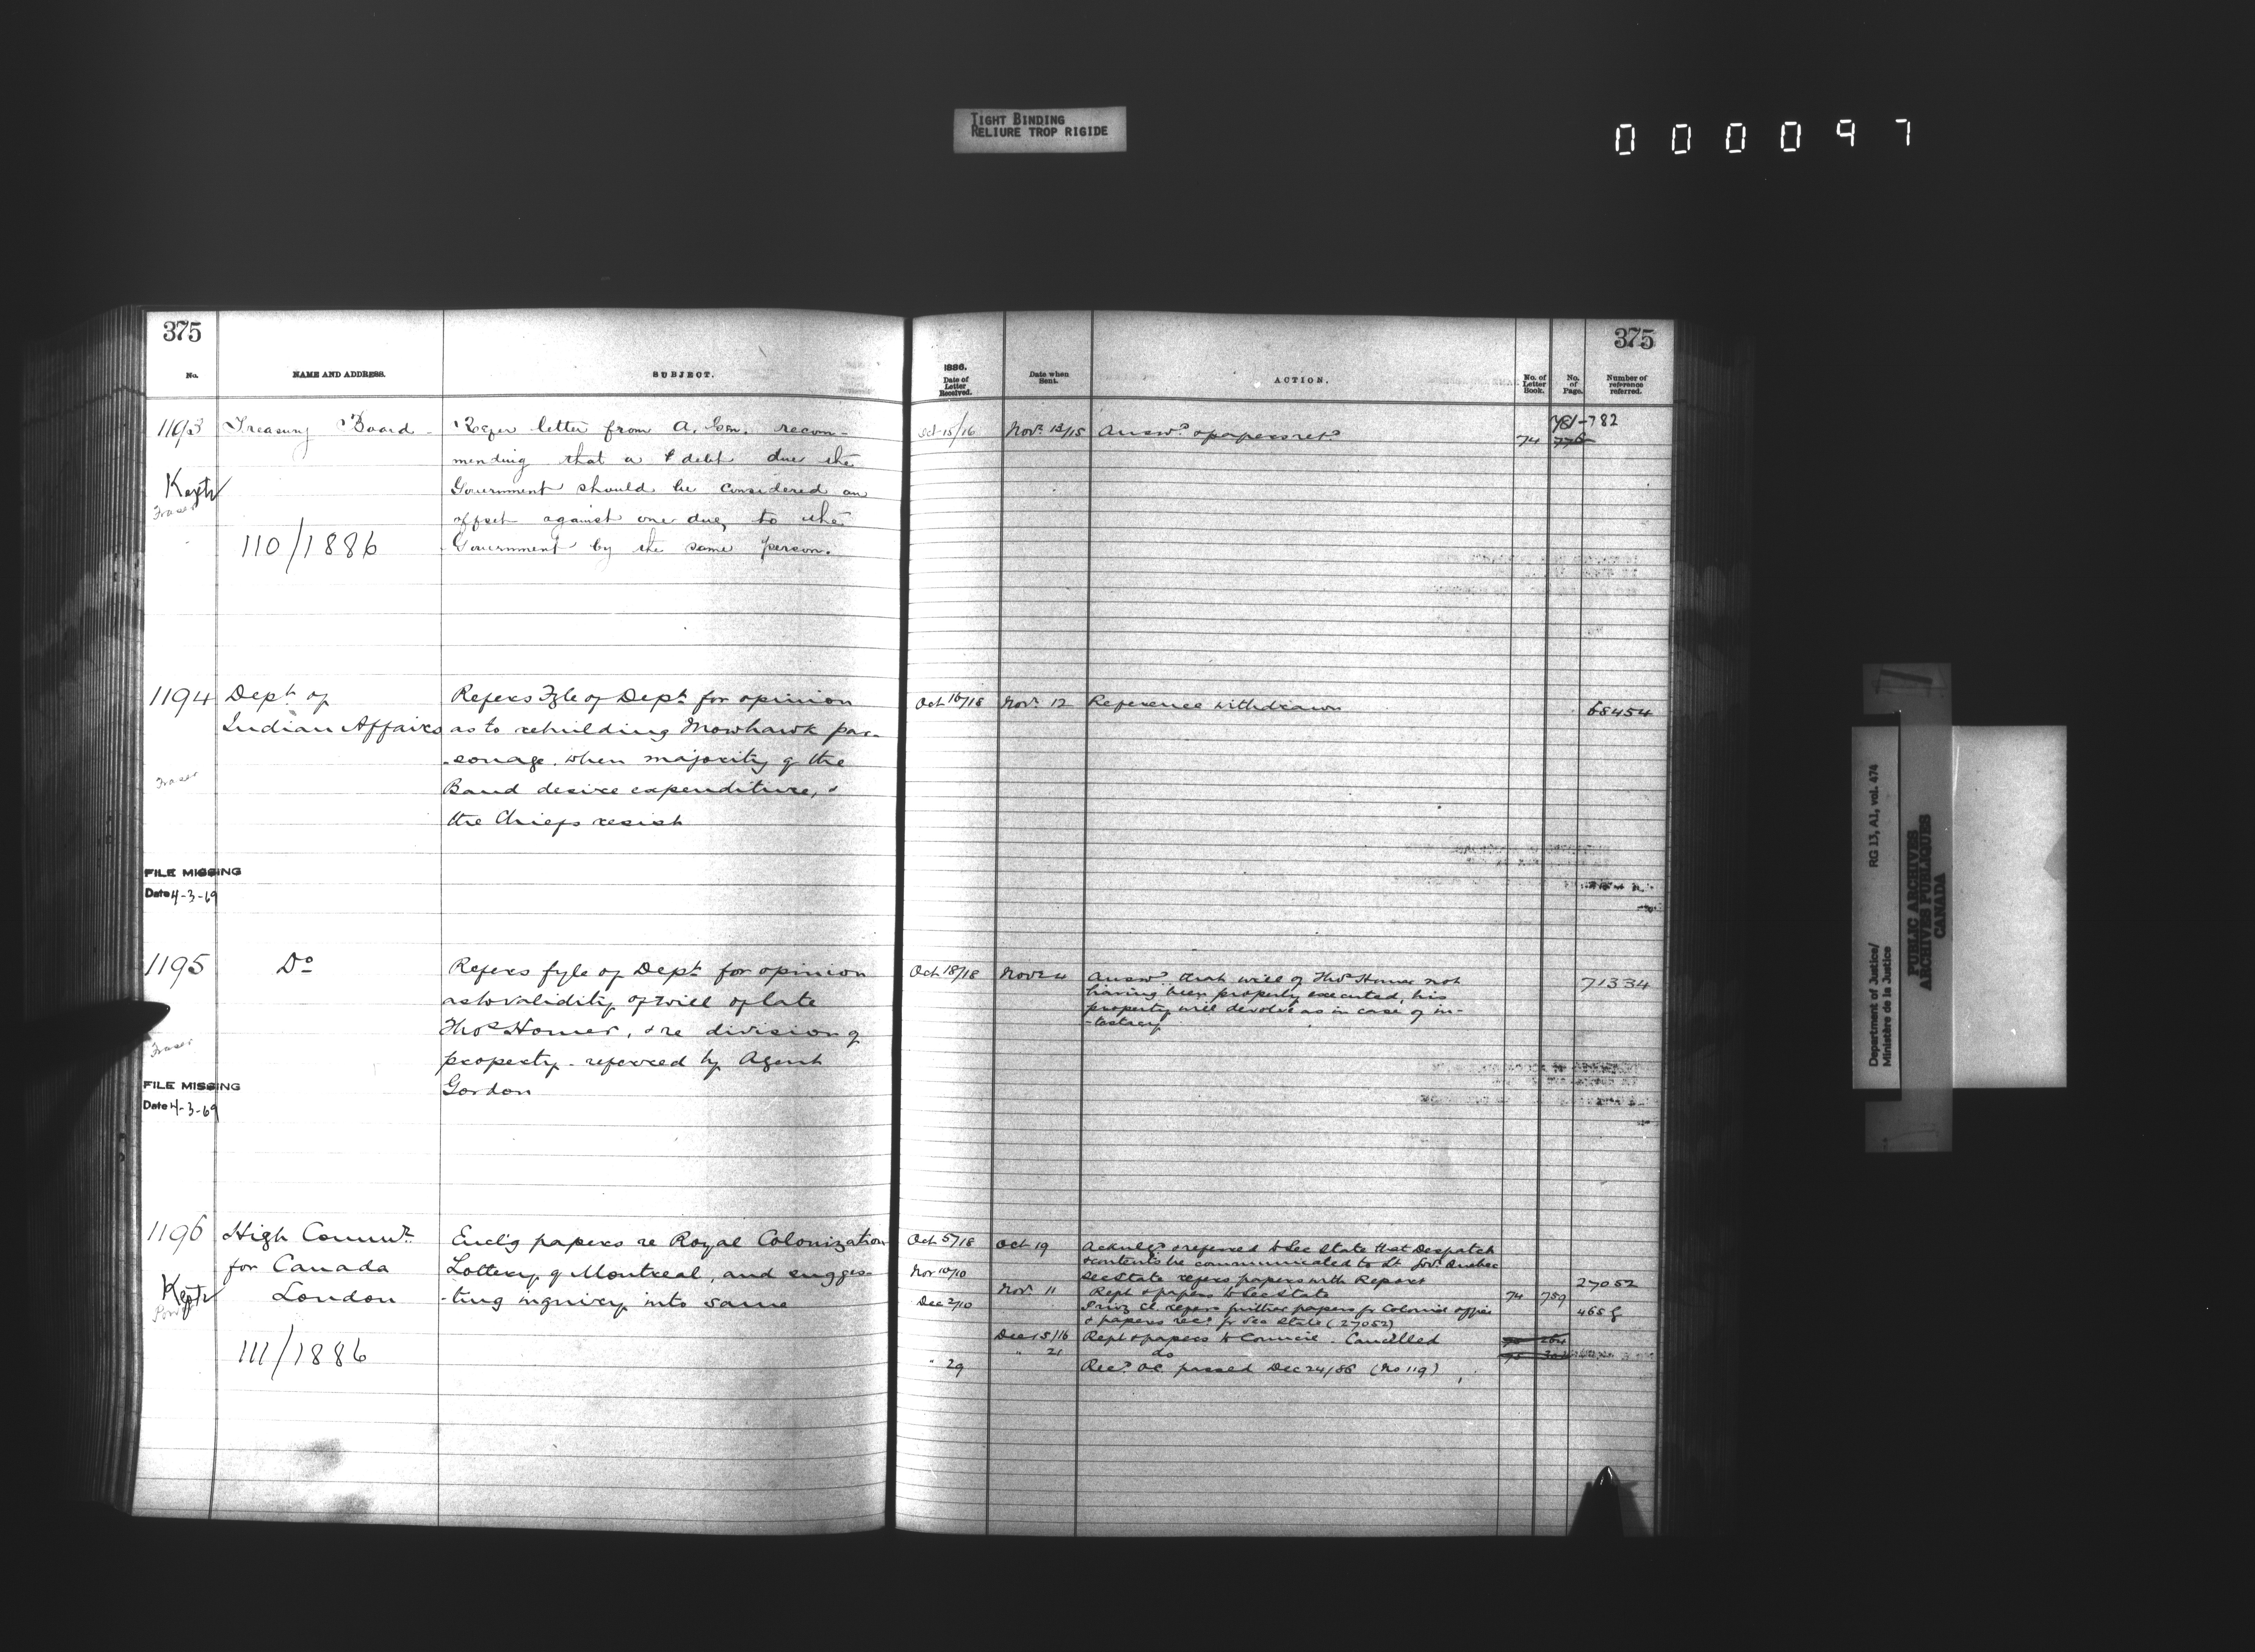 TIGHT BINDING
RELIURE TROP RIGIDE
000097
375
No.
NAME AND ADDRESS.
SUBJECT.
1193
Treasury Board
Refer letter from A. Gen. recom-
mending that a debt due the
Government should be considered an
offset against one due, to the
Government by the same person.
Kept
Fraser
110/1886
1194
Dept. of
Indian Affairs
Refers Fyle of Dept. for opinion
as to rebuilding Mowhawk par-
-sonage. when majority of the
Band desire expenditure, &
the Chiefs resist
Fraser
FILE MISSING
Date 4-3-69
1195
Do
Refers fyle of Dept. for opinion
as to validity of will of late
Thos Homer, & re division of
property - referred by Agent
Gordon
Fraser
FILE MISSING
Date 4-3-69
1196
High Commr.
for Canada
London
Encl'g papers re Royal Colonization
Lottery of Montreal, and sugges-
-ting inquiry into same
Kept
111/1886
375
1886.
Date of
Letter
Received.
Date when
Sent.
ACTION.
No. of
Letter
Book.
No.
of
Page.
Number of
reference
referred.
Oct 15/16 Novr. 12/15 Answd. & papers retd. 74 781-782
Oct 16/18 Novr. 12 Reference withdrawn 68454
Oct 18/18 Nov 24 Answd. that will of Thos Homer not 71334
having been properly executed, his
property will devolve as in case of in-
-testacy
Oct 5/18 Oct 19 Acknlgd. & referred to Sec State that Despatch
& contents be communicated to Lt. Govr. Quebec
Nov 10/10 Sec State refers papers with Report 27052
Novr. 11 Rept & papers to Sec State 74 759
Dec 2/10 Privy Cl. refers further papers fr Colonial office 465 g
& papers recd. fr Sec State (27052)
Dec 15/16 Rept & papers to Council. Cancelled
" 21 do
" 29 Recd. OC passed Dec 24/86 (No 119)
Department of Justice/
Ministère de la Justice
RG 13, A1, vol. 474
PUBLIC ARCHIVES
ARCHIVES PUBLIQUES
CANADA